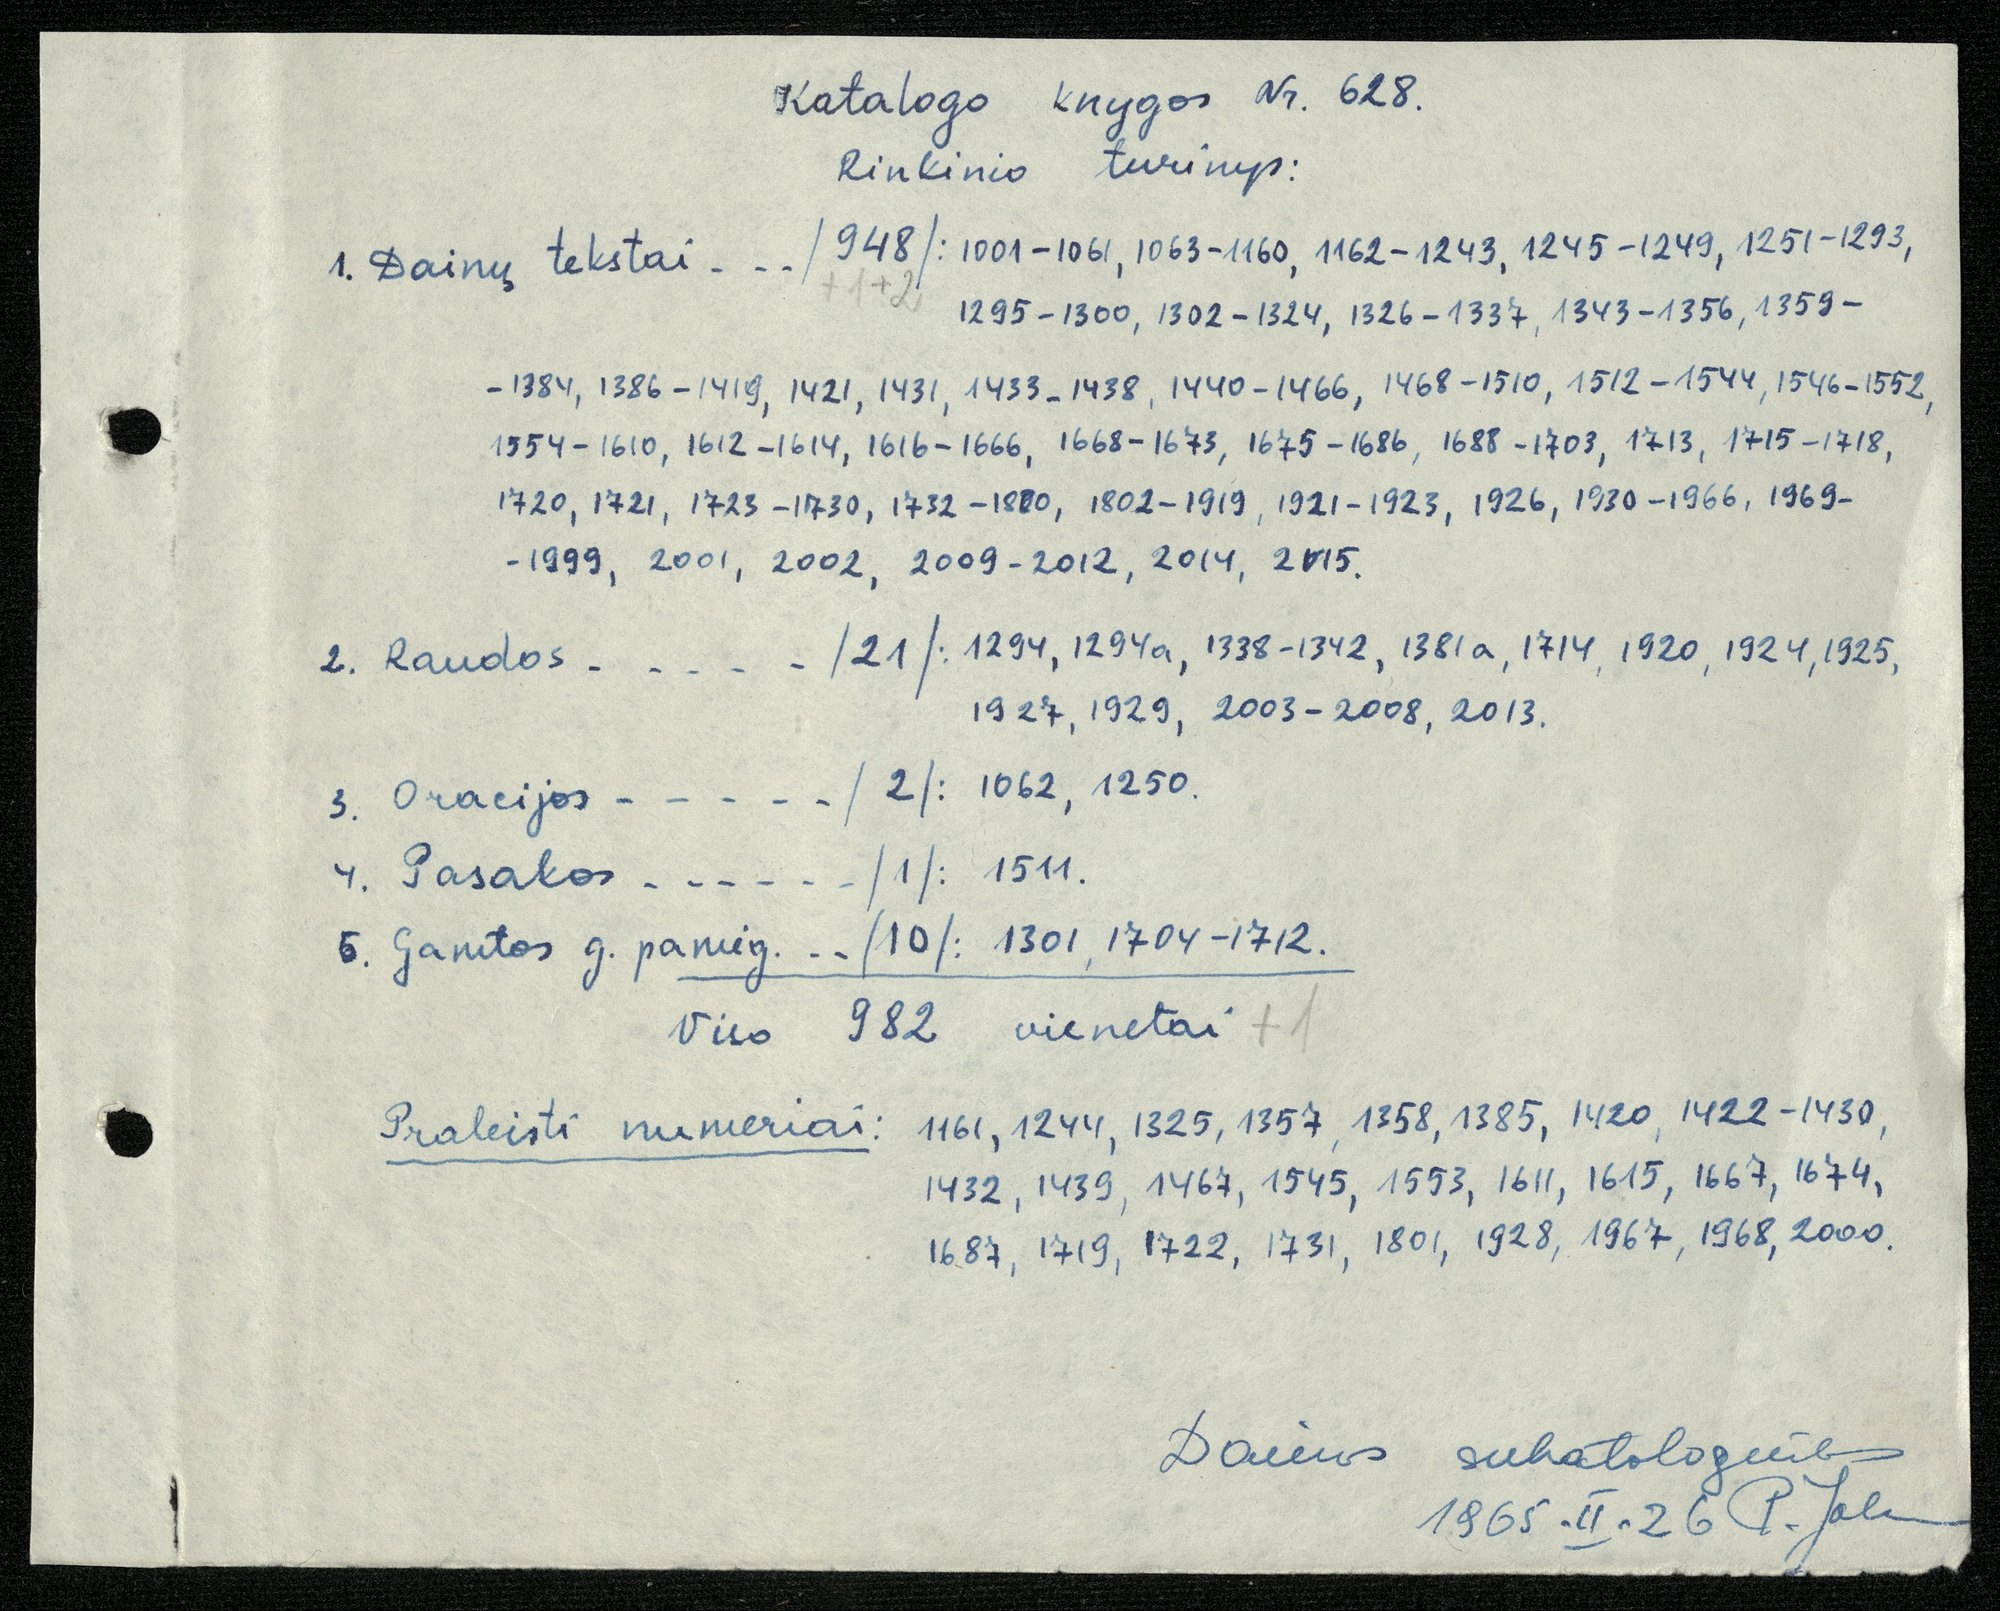 Katalogo knygos Nr. 628.
Rinkinio turinys:
1. Dainų tekstai - - - /948/: 1001-1061, 1063-1160, 1162-1243, 1245-1249, 1251-1293,
+1+2
1295-1300, 1302-1324, 1326-1337, 1343-1356, 1359-
-1384, 1386-1419, 1421, 1431, 1433-1438, 1440-1466, 1468-1510, 1512-1544, 1546-1552,
1554-1610, 1612-1614, 1616-1666, 1668-1673, 1675-1686, 1688-1703, 1713, 1715-1718,
1720, 1721, 1723-1730, 1732-1800, 1802-1919, 1921-1923, 1926, 1930-1966, 1969-
-1999, 2001, 2002, 2009-2012, 2014, 2015.
2. Raudos - - - - - /21/: 1294, 1294a, 1338-1342, 1381a, 1714, 1920, 1924, 1925,
1927, 1929, 2003-2008, 2013.
3. Oracijos - - - - - /2/: 1062, 1250.
4. Pasakos - - - - - - /1/: 1511.
5. Gamtos g. pamėg. - - /10/: 1301, 1704-1712.
Viso 982 vienetai +1
Praleisti numeriai: 1161, 1244, 1325, 1357, 1358, 1385, 1420, 1422-1430,
1432, 1439, 1467, 1545, 1553, 1611, 1615, 1667, 1674,
1687, 1719, 1722, 1731, 1801, 1928, 1967, 1968, 2000.
Dainos sukatologuotos
1965.II.26 P. Jok